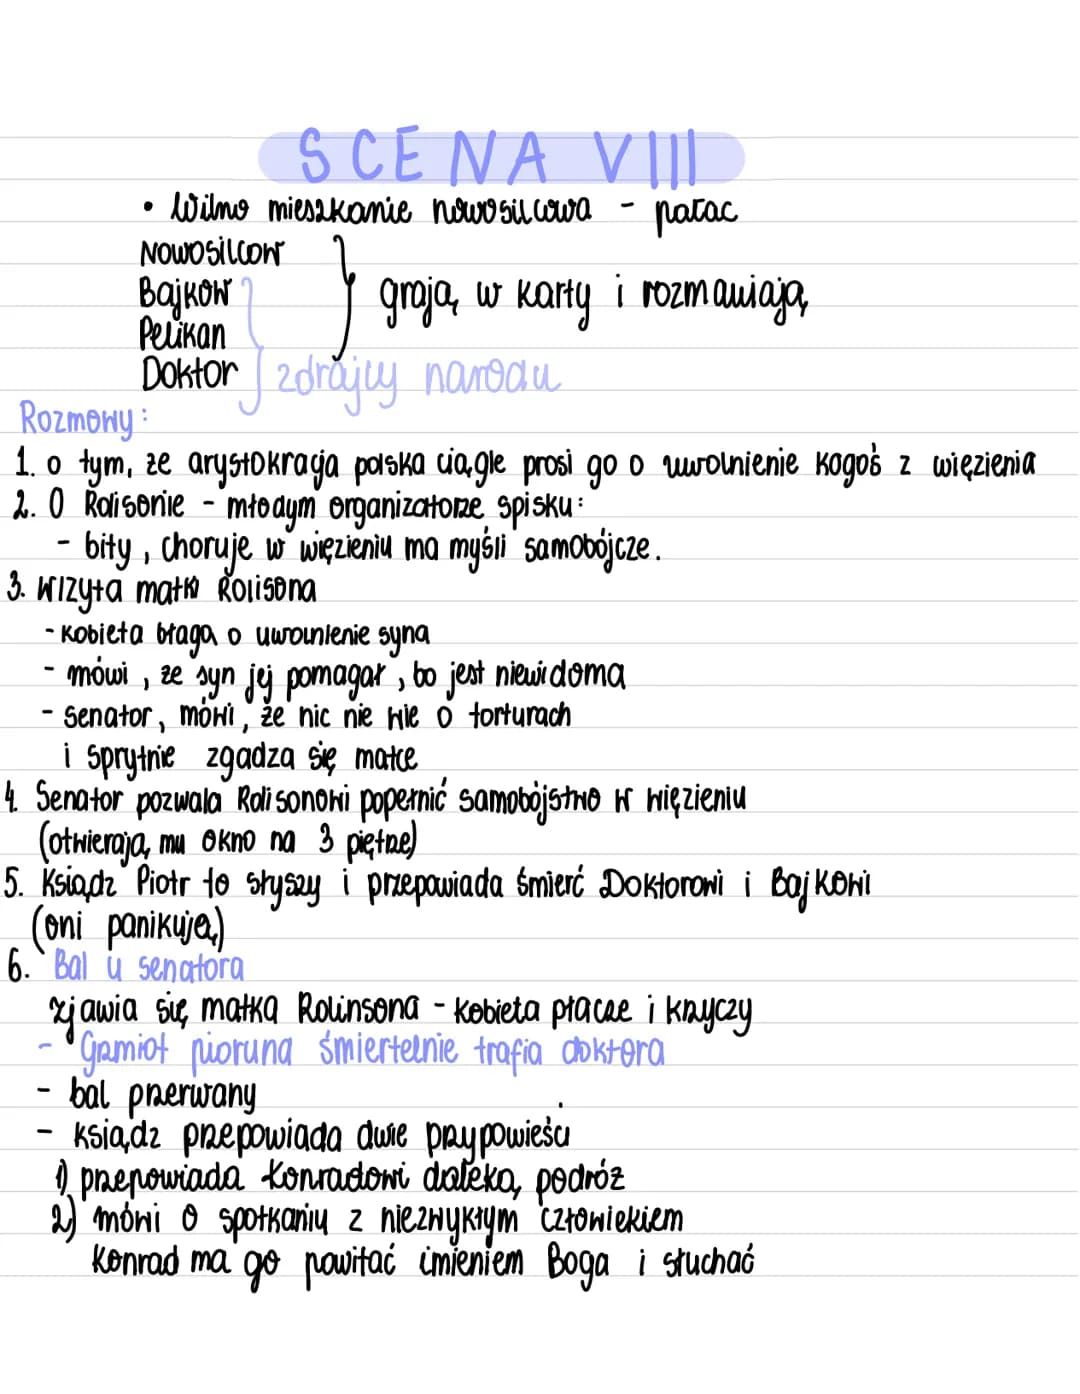 SCENA VIII
• Wilno mieszkanie nowosilcowa - pałac
Nowosilcow
Bajkow
grają w karty i rozmawiają
Pelikan
Doktor
zdrajcy narodu
Rozmowy:
1. o tym, że arystokracja polska ciągle prosi go o uwolnienie kogoś z więzienia
2. O Rolisonie - młodym organizatorze spisku:
- bity, choruje w więzieniu ma myśli samobójcze.
3. Wizyta matki Rolisona
- kobieta błaga o uwolnienie syna
- mówi, że syn jej pomagał, bo jest niewidoma
- senator, mówi, że nic nie wie o torturach
i sprytnie zgadza się matce
4. Senator pozwala Rolisonowi popełnić samobójstwo w więzieniu
(otwierają mu okno na 3 piętrze)
5. Ksiądz Piotr to słyszy i przepowiada śmierć Doktorowi i Bajkowi
(oni panikują)
6. Bal u senatora
zjawia się matka Rolinsona - kobieta płacze i krzyczy
- Grzmiot pioruna śmiertelnie trafia doktora
- bal przerwany
- ksiądz przepowiada dwie przypowieści
1) przepowiada Konradowi daleką podróż
2) mówi o spotkaniu z niezwykłym człowiekiem
Konrad ma go powitać imieniem Boga i słuchać